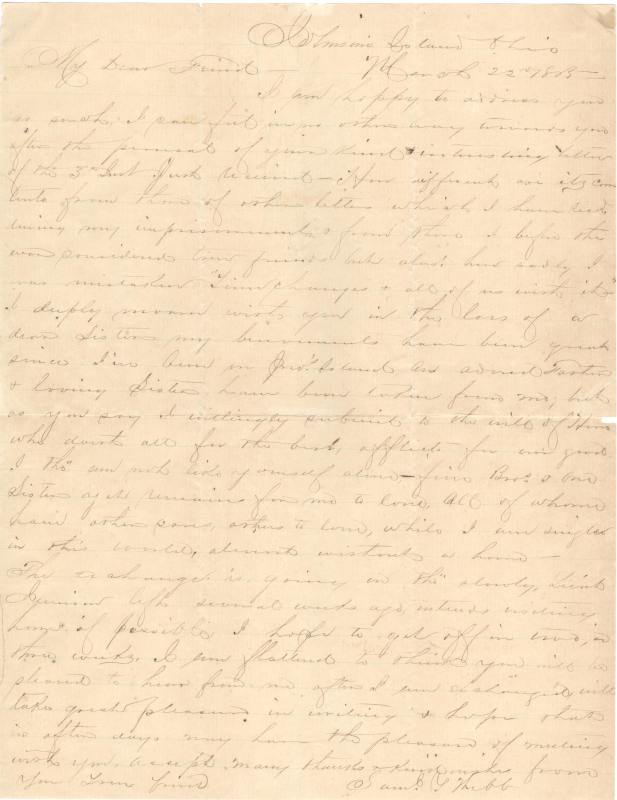 Johnson's Island Ohio
My Dear Friend — March 22nd 1865 —
I am happy to address you
as such, I can feel in no other way towards you
after the perusal of your kind & interesting letter
of the 3rd Inst Just received — How different are its con
tents from those of other letters which I have recd
during my imprisonment & from those I before the
war considered true friends but alas! how sadly I
was mistaken "Time changes & all of us with it"
I deeply mourn with you in the loss of a
dear Sister, my bereavements have been great
since I've been on Jno's Island An adored
& loving Sister have been taken from me, but
as you say I willingly submit to the will of Him
who doeth all for the best, afflicts for our good
I tho' am not like yourself alone, five Bros & one
Sister yet remains for me to love, All of whom
have other ones, others to love, while I am single
in this world, almost without a home —
The exchange is going on tho' slowly, Lieut
left several weeks ago, intends visiting
home if possible I hope to get off in two, or
three weeks. I am flattered to think you will be
pleased to hear from me after I am exchanged will
take great pleasure in writing & hope that
in after days may have the pleasure of meeting
with you. accept many thanks & kind wishes from
your true friend Saml